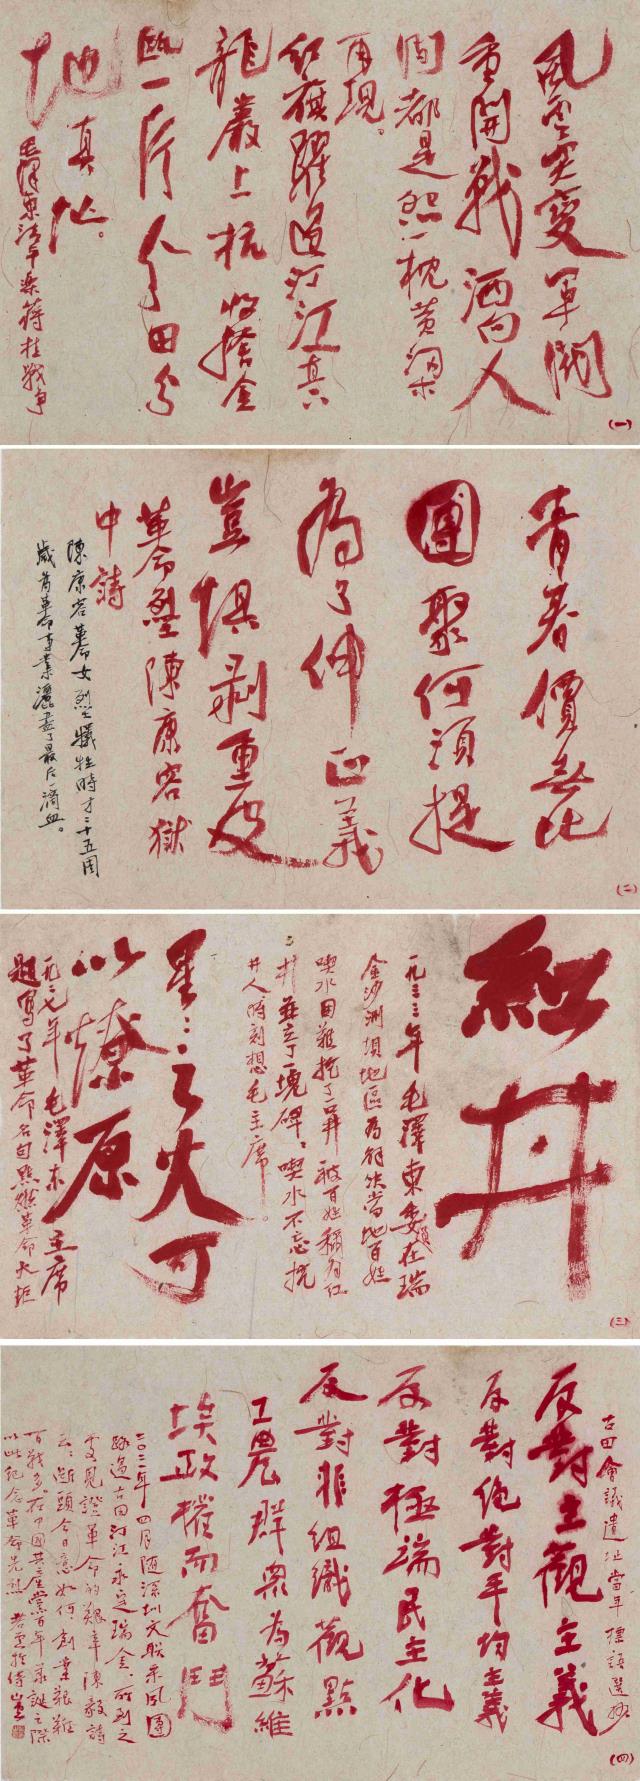 風雲突變軍閥
重開戰洒向人
间都是怨一枕黄粱
再現。
红旗躍過汀江直下
龍巖上杭收拾金
甌一片分田分
地真忙。
毛澤東清平樂蒋桂戰争
(一)
青春價無比
團聚何須提
為了伸正義
豈惧剥重皮
革命烈士陳康容獄
中詩
陳康容革命女烈士犠牲時才二十五周
歲為革命事業灑盡了最后一滴血。
(二)
紅井
一九三三年毛澤東主席在瑞
金沙洲垻地區為解决當地百姓
喫水困難挖了一口井被百姓稱为红
井并立了一塊碑：喫水不忘挖
井人時刻想毛主席。
星々之火可
以燎原
毛澤东主席
題寫了革命名句點燃革命火炬
(三)
古田會議遺址當年標語選抄
反對主觀主義
反對绝對平均主義
反對極端民主化
反對非组織觀點
工農群眾為蘇維
埃政權而奮鬥
二〇二一年四月随深圳文联采风團
路過古田汀江永定瑞金、所到之
處見證革命的艱辛陳毅詩
云：断頭今日意如何創業艱難
百戰多。在中國共産黨百年華誕之際
以此纪念革命先烈
(四)